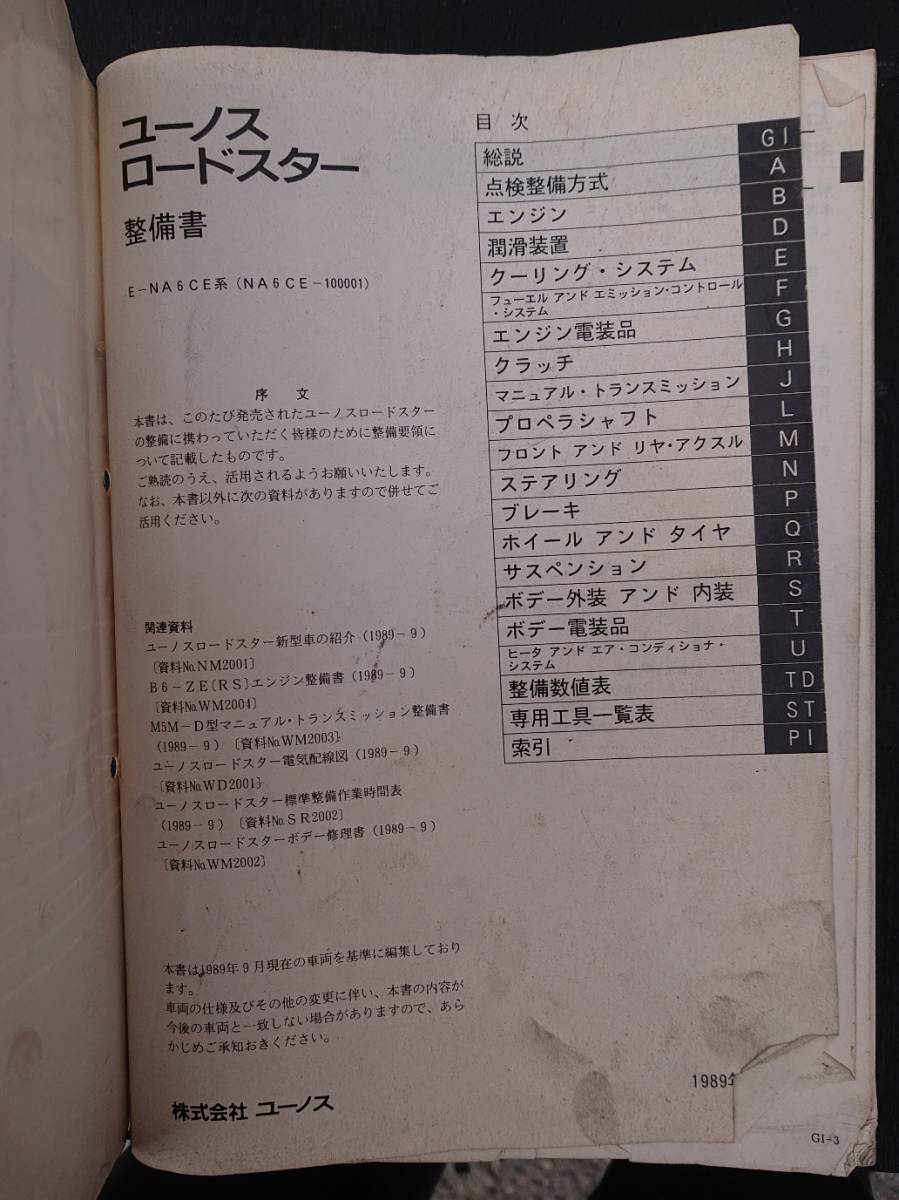 ユーノス
ロードスター
整備書
E-NA6CE系（NA6CE-100001）
序　文
本書は、このたび発売されたユーノスロードスター
の整備に携わっていただく皆様のために整備要領に
ついて記載したものです。
ご熟読のうえ、活用されるようお願いいたします。
なお、本書以外に次の資料がありますので併せてご
活用ください。
関連資料
ユーノスロードスター新型車の紹介（1989-9）
〔資料No.NM2001〕
B6-ZE〔RS〕エンジン整備書（1989-9）
〔資料No.WM2004〕
M5M-D型マニュアル・トランスミッション整備書
（1989-9）〔資料No.WM2003〕
ユーノスロードスター電気配線図（1989-9）
〔資料No.WD2001〕
ユーノスロードスター標準整備作業時間表
（1989-9）〔資料No.SR2002〕
ユーノスロードスターボデー修理書（1989-9）
〔資料No.WM2002〕
本書は1989年9月現在の車両を基準に編集しており
ます。
車両の仕様及びその他の変更に伴い、本書の内容が
今後の車両と一致しない場合がありますので、あら
かじめご承知おきください。
株式会社 ユーノス
目　次
総説 GI
点検整備方式 A
エンジン B
潤滑装置 D
クーリング・システム E
フューエル アンド エミッション・コントロール
・システム F
エンジン電装品 G
クラッチ H
マニュアル・トランスミッション J
プロペラシャフト L
フロント アンド リヤ・アクスル M
ステアリング N
ブレーキ P
ホイール アンド タイヤ Q
サスペンション R
ボデー外装 アンド 内装 S
ボデー電装品 T
ヒータ アンド エア・コンディショナ・
システム U
整備数値表 TD
専用工具一覧表 ST
索引 PI
1989年
GI-3